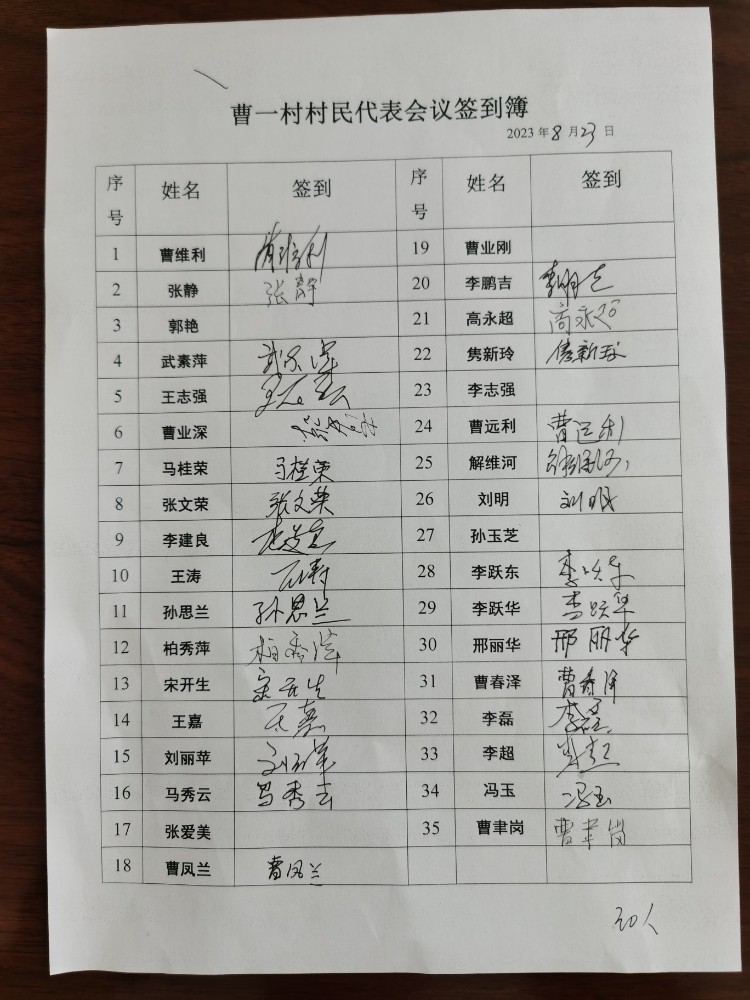 曹一村村民代表会议签到簿
2023 年 8 月 23 日
序号 姓名 签到 序号 姓名 签到
1 曹维利 曹维利 19 曹业刚
2 张静 张静 20 李鹏吉 李鹏吉
3 郭艳 21 高永超 高永超
4 武素萍 武素萍 22 隽新玲 隽新玲
5 王志强 王志强 23 李志强
6 曹业深 24 曹远利 曹远利
7 马桂荣 马桂荣 25 解维河 解维河
8 张文荣 张文荣 26 刘明 刘明
9 李建良 李建良 27 孙玉芝
10 王涛 王涛 28 李跃东 李跃东
11 孙思兰 孙思兰 29 李跃华 李跃华
12 柏秀萍 柏秀萍 30 邢丽华 邢丽华
13 宋开生 宋开生 31 曹春泽 曹春泽
14 王嘉 王嘉 32 李磊 李磊
15 刘丽苹 刘丽苹 33 李超 李超
16 马秀云 马秀云 34 冯玉 冯玉
17 张爱美 35 曹聿岗 曹聿岗
18 曹凤兰 曹凤兰
30人